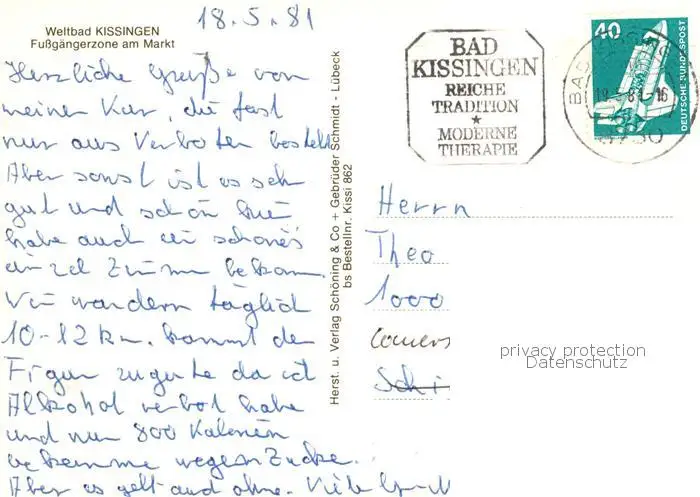 18.5.81
Weltbad KISSINGEN
Fußgängerzone am Markt
Herzliche Grüße von
meiner Kur, die fast
nur aus Verboten besteht
Aber sonst ist es sehr
gut und schön hier
habe auch ein schönes
einzel Zimmer bekomm.
Wir wandern täglich
10-12 km. kommt der
Figur zugute da ich
Alkohol verbot habe
und nur 800 Kalorien
bekomme wegen Zucker.
Aber es geht auch ohne. Viele
Herst. u. Verlag Schöning & Co + Gebrüder Schmidt - Lübeck
bs Bestellnr. Kissi 862
BAD
KISSINGEN
REICHE
TRADITION
★
MODERNE
THERAPIE
40
DEUTSCHE BUNDESPOST
BAD
-16
8730
Herrn
Theo
1000
Schi
privacy protection
Datenschutz